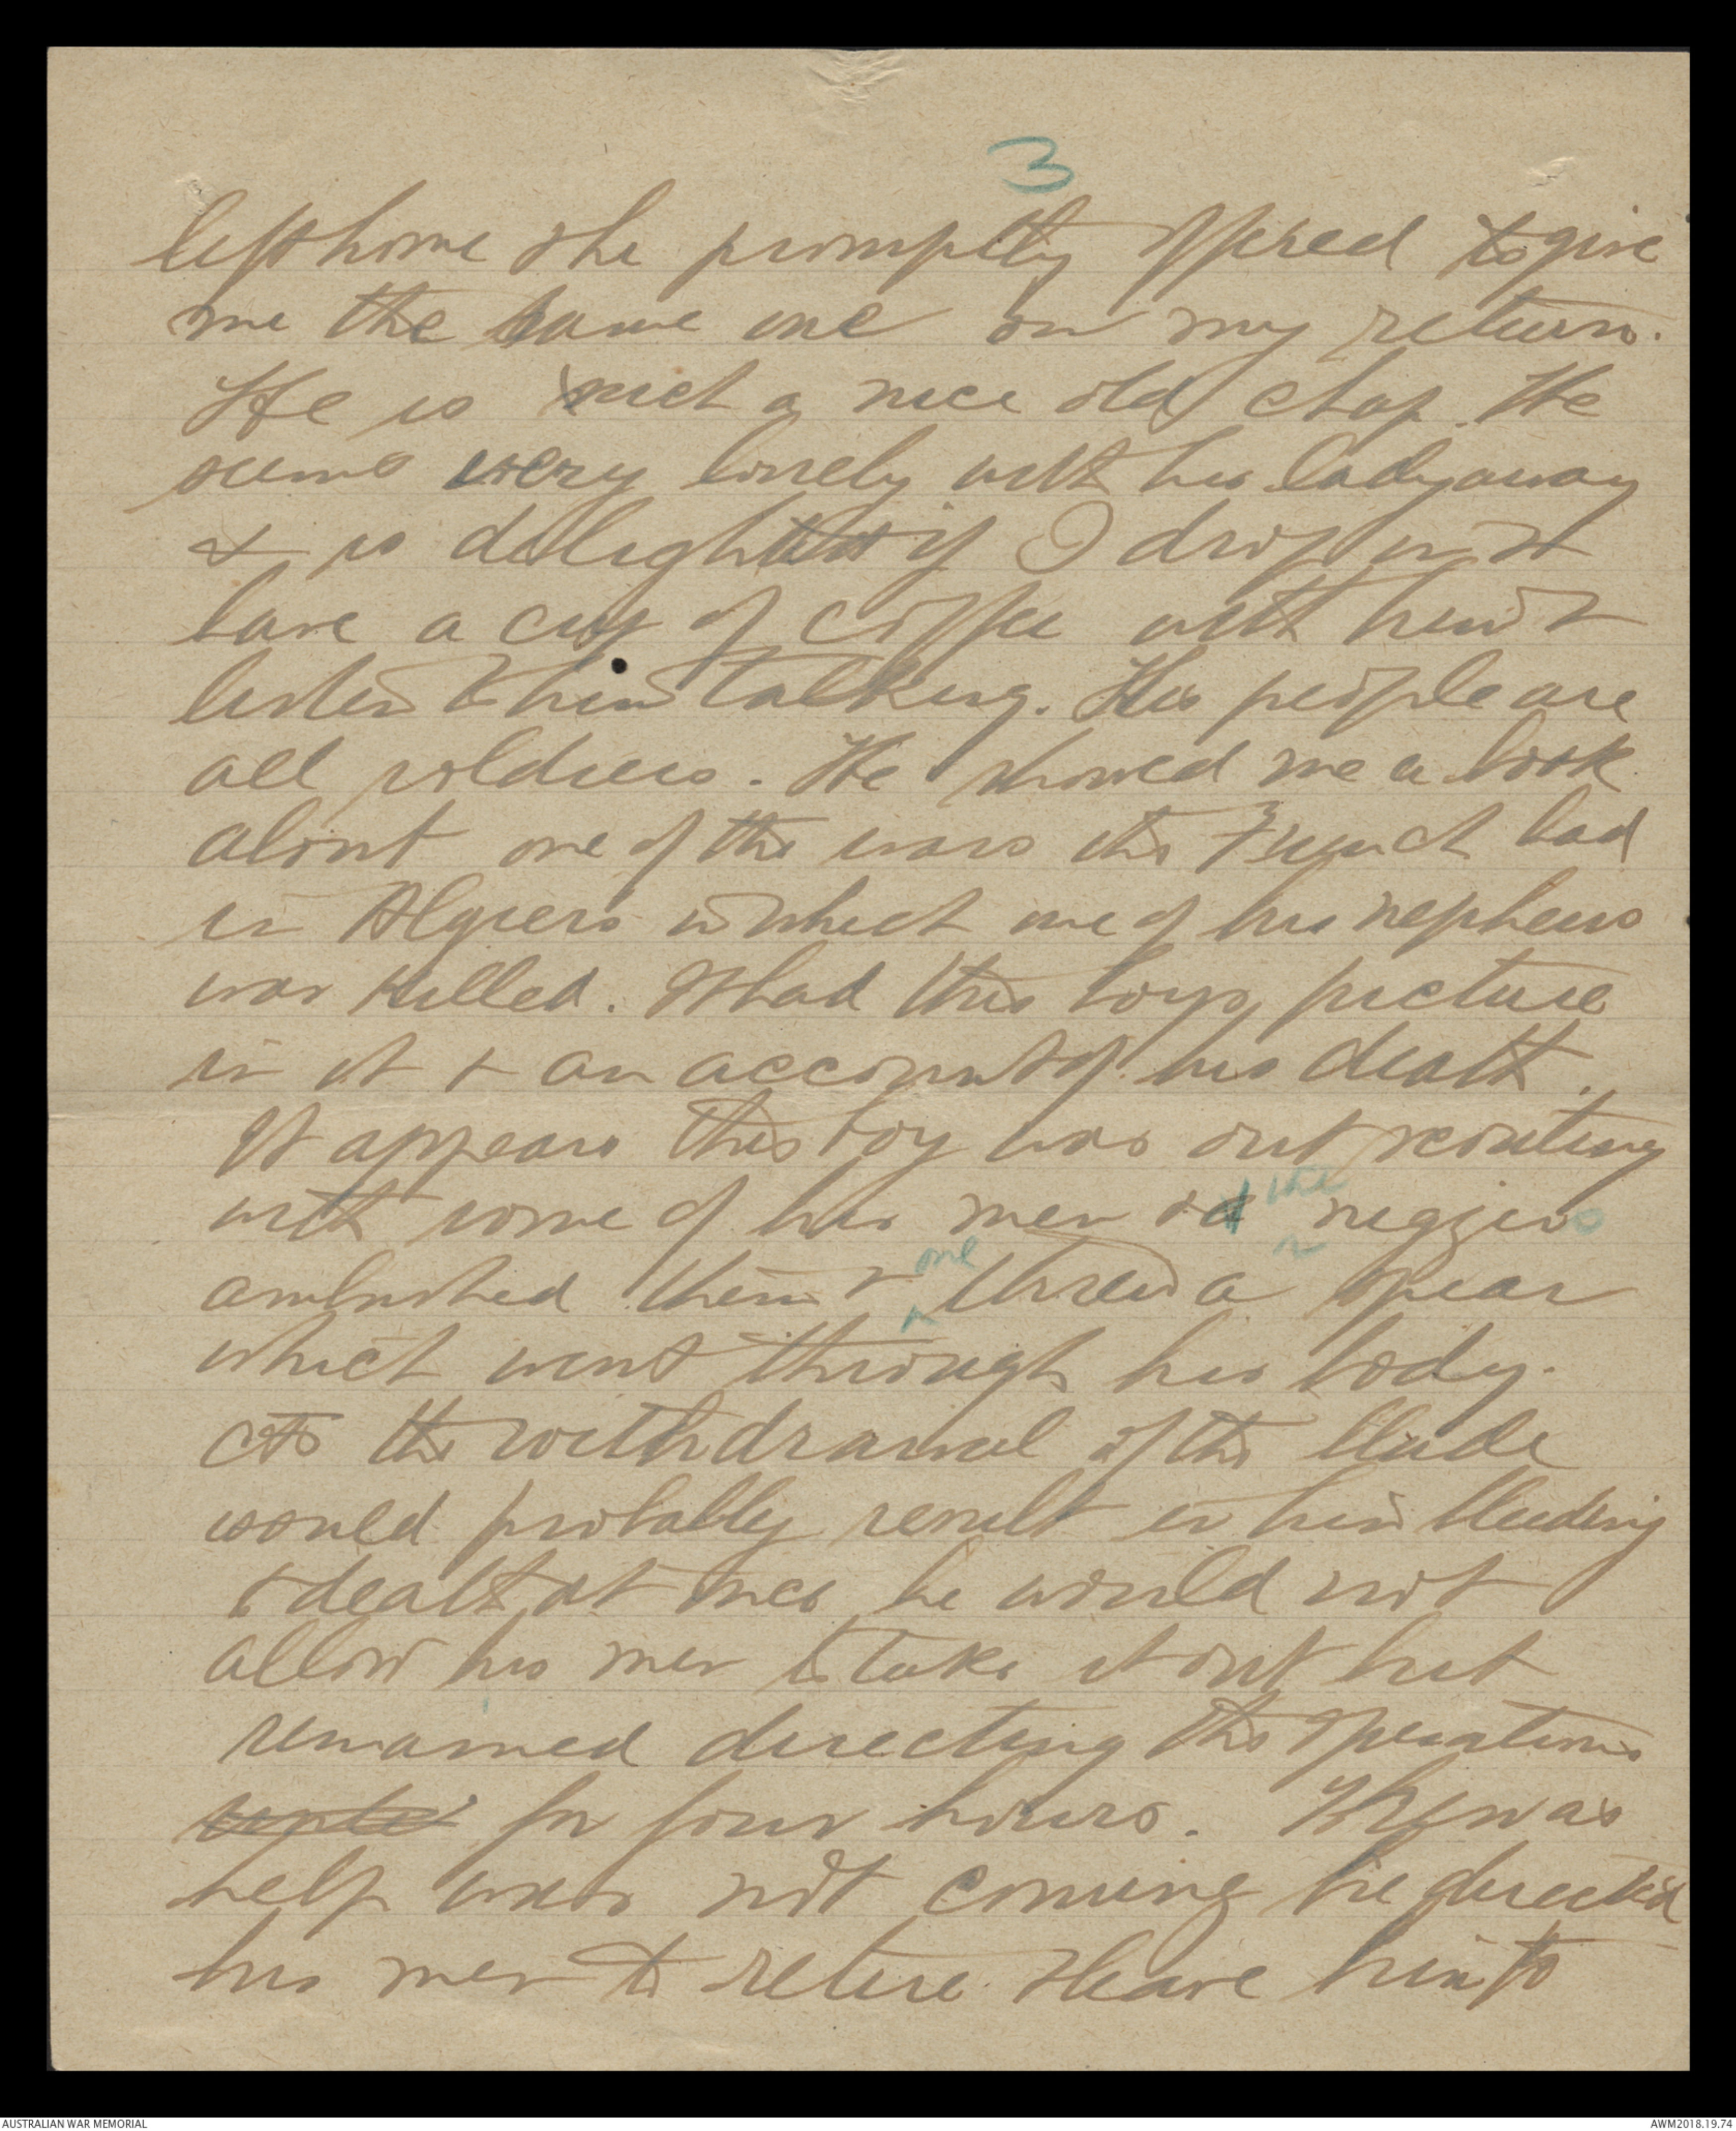 3
left home & he promptly offered to give
me the same one on my return.
He is such a nice old chap. He
seems very lonely with his lady away
& is delighted if I drop in &
have a cup of coffee with him &
listen to him talking. His people are
all soldiers. He showed me a book
about one of the wars the French had
in Algiers in which one of his nephews
was killed. It had this boys picture
in it & an account of his death.
It appears this boy was out scouting
with some of his men & the niggers
ambushed them & one threw a spear
which went through his body.
As the withdrawal of the blade
would probably result in him bleeding
to death at once he would not
allow his men to take it out but
remained directing the operations
for four hours. When as
help was not coming he directed
his men to retire & leave him to
AUSTRALIAN WAR MEMORIAL
AWM2018.19.74